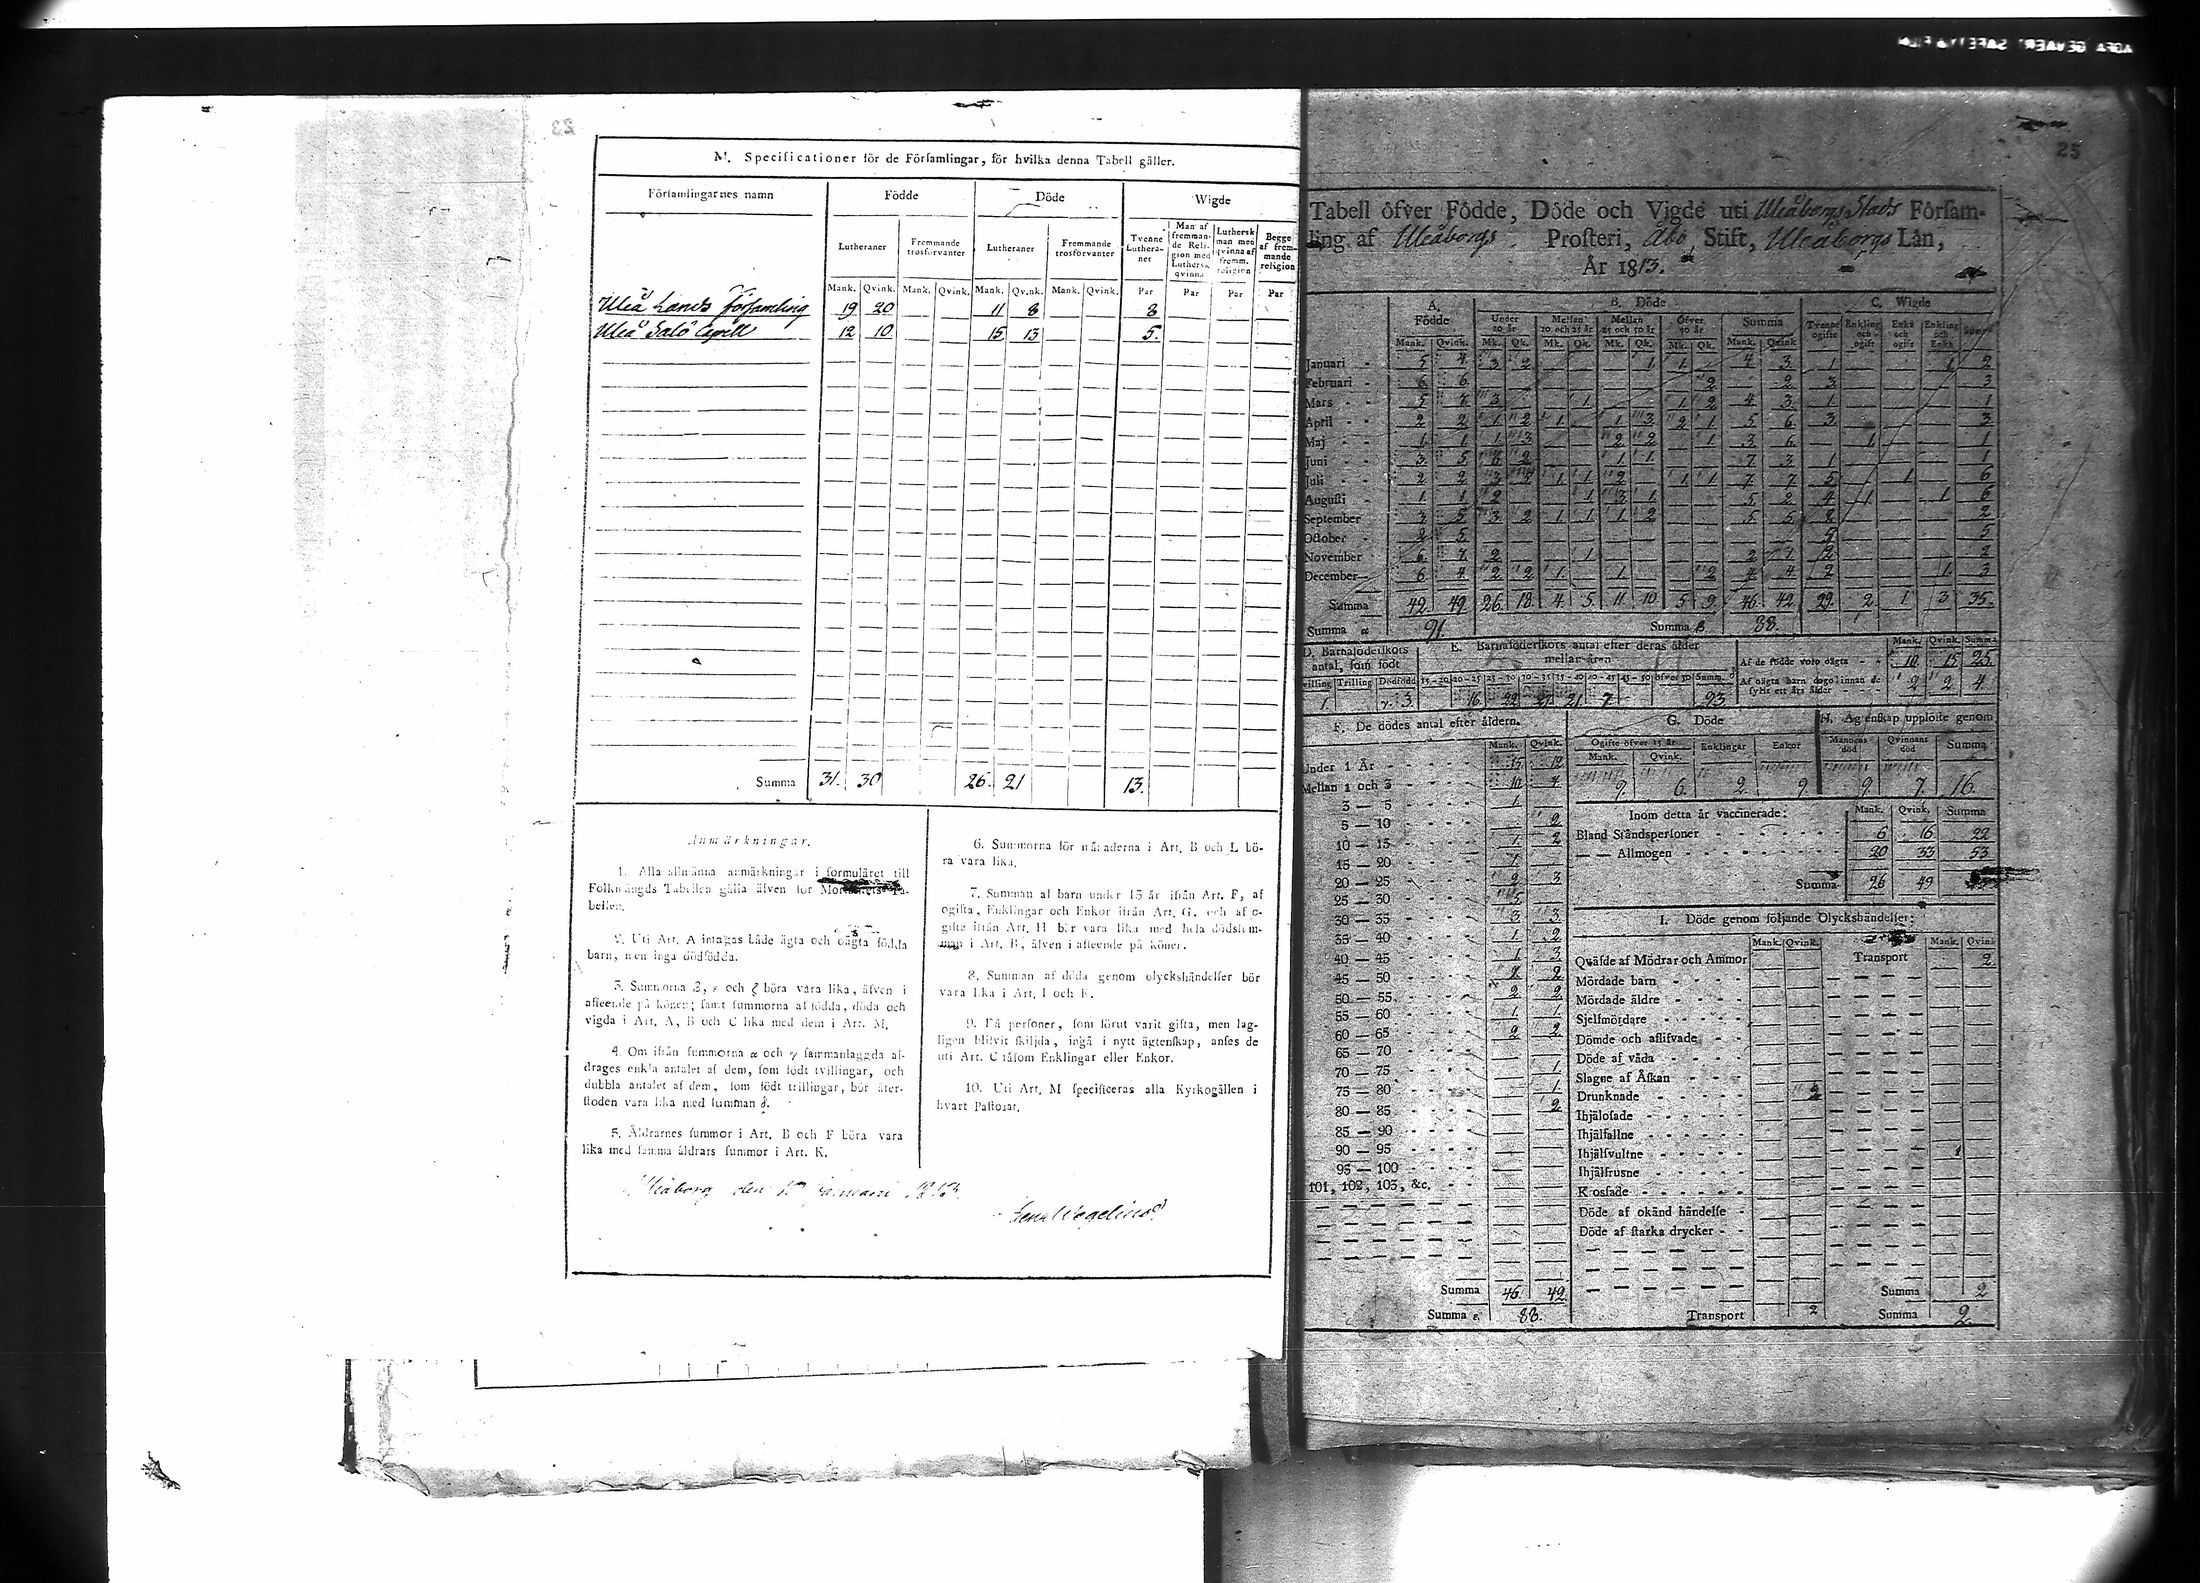 25
M. Specificationer för de Församlingar, för hvilka denna Tabell gäller.
Församlingarnes namn Födde Döde Wigde
Lutheraner Fremmande trosförvanter Lutheraner Fremmande trosförvanter Tvenne Lutheraner Man af fremmande Religion med Luthersk qvinna Luthersk man med qvinna af fremm. religion Begge af fremmande religion
Mank. Qvink. Mank. Qvink. Mank. Qvink. Mank. Qvink. Par Par Par Par
Uleå Lands församling 19 20 11 8 8
Uleå Salo Capell 12 10 15 13 5.
Summa 31. 30 26. 21 13.
Anmärkningar.
1. Alla allmänna anmärkningar i formuläret till
Folkmängds Tabellen gälla äfven för Mortalitets Ta-
bellen.
2. Uti Art. A intagas både ägta och oägta födda
barn, men inga dödfödda.
3. Summorna β, ε och ζ böra vara lika, äfven i
afseende på könen; samt summorna af födda, döda och
vigda i Art. A, B och C lika med dem i Art. M.
4. Om ifrån summorna α och γ sammanlaggda af-
drages enkla antalet af dem, som födt tvillingar, och
dubbla antalet af dem, som födt trillingar, bör åter-
stoden vara lika med summan δ.
5. Åldrarnes summor i Art. B och F böra vara
lika med samma åldrars summor i Art. K.
6. Summorna för månaderna i Art. B och L bö-
ra vara lika.
7. Summan af barn under 15 år ifrån Art. F, af
ogifta, Enklingar och Enkor ifrån Art. G, och af o-
gifte ifrån Art. H bör vara lika med hela dödssum-
man i Art. B, äfven i afseende på könet.
8. Summan af döda genom olyckshändelser bör
vara lika i Art. I och K.
9. Få personer, som förut varit gifta, men lag-
ligen blifvit skiljda, ingå i nytt ägtenskap, anses de
uti Art. C såsom Enklingar eller Enkor.
10. Uti Art. M specificeras alla Kyrkogällen i
hvart Pastorat.
Uleåborg den
Tabell öfver Födde, Döde och Vigde uti Uleåborgs Stads Församling
ling af Uleåborgs Prosteri, Åbo Stift, Uleåborgs Län,
År 1813.
A. Födde B. Döde C. Wigde
Under 10 år Mellan 10 och 25 år Mellan 25 och 50 år Öfver 50 år Summa Tvenne ogifte Enkling och ogift Enka och ogift Enkling och Enka Summa
Mank. Qvink. Mk. Qk. Mk. Qk. Mk. Qk. Mk. Qk. Mank. Qvink
Januari 5 4 3 2 1 1 4 3 1 1 2
Februari 6 6 2 2 3 3
Mars 5 7 3 1 1 2 4 3 1 1
April 2 2 1 2 1 1 3 2 1 5 6 3 3
Maj 1 1 1 3 2 2 1 3 6 1 1
Juni 3 5 6 2 1 1 7 3 1 1
Juli 2 2 3 4 1 1 2 1 1 7 7 5 1 6
Augusti 1 1 2 1 3 1 5 2 4 1 1 6
September 3 5 3 2 1 1 1 2 5 5 2 2
October 2 5 5 5
November 6 7 2 1 2 1 2 2
December 6 4 2 2 1 1 2 4 4 2 1. 3
Summa 42. 49. 26. 18. 4. 5. 11. 10. 5 9. 46. 42. 29. 2. 1 3 35.
Summa α 91. Summa β 88.
D. Barnaföderskors antal, som födt
Tvilling Trilling Dödfödd
1. γ. 3.
E. Barnaföderskors antal efter deras ålder mellan åren
15-20 20-25 25-30 30-35 35-40 40-45 45-50 öfver 50 Summ. δ
16. 22 27. 21. 7 93
Mank. Qvink. Summa
Af de födde voro oägta 10 15 25.
Af oägta barn dogo innan de fyllt ett års ålder 2 2 4.
F. De dödes antal efter åldern.
Mank. Qvink.
Under 1 År 15 12
Mellan 1 och 3 10 4
3 — 5 1
5 — 10 2
10 — 15 1 2
15 — 20 1
20 — 25 2 3
25 — 30 5
30 — 35 3 3
35 — 40 1 2
40 — 45 1 3
45 — 50 2
50 — 55 2 2
55 — 60 1 1
60 — 65 2 2
65 — 70
70 — 75 1
75 — 80 1
80 — 85 2
85 — 90
90 — 95
95 — 100
101, 102, 103, &c.
Summa 46. 42.
Summa ε. 88.
G. Döde
Ogifte öfver 15 år Enklingar Enkor
Mank. Qvink.
9. 6. 2. 9.
H. Ägtenskap upplöste genom
Mannens död Qvinnans död Summa
9 7. 16.
Inom detta år vaccinerade: Mank. Qvink. Summa
Bland Ståndspersoner 6 16 22
— — Allmogen 20 33 53
Summa 26 49
I. Döde genom följande Olyckshändelser:
Mank. Qvink. Mank. Qvink
Qväfde af Mödrar och Ammor Transport 2
Mördade barn
Mördade äldre
Sjelfmördare
Dömde och aflifvade
Döde af våda
Slagne af Åskan
Drunknade 2
Ihjälofade
Ihjälfallne
Ihjälsvultne
Ihjälfrusne
Kosfade
Döde af okänd händelse
Döde af starka drycker
Summa 2
Transport 2 Summa 2.